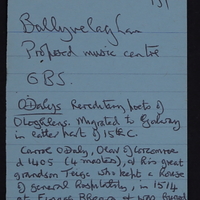 151
Ballyvelaghan
Proposed music centre
GBS.
O'Dalys Hereditary poets of
O'Loghlens. Migrated to Galway
in latter part of 15th C.
Carroll O'Daly, Olav of Corcomroe
d 1405 (4 masters), & his great
grandson Teige who kept a house
of General Hospitality, in 1514
at Finnea Bheara & was buried